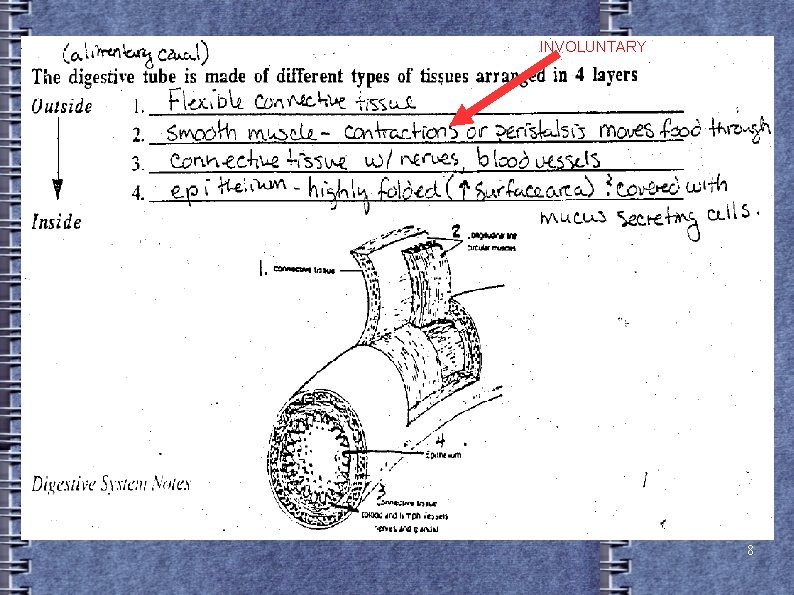 INVOLUNTARY
(alimentary canal)
The digestive tube is made of different types of tissues arranged in 4 layers
Outside 1. Flexible connective tissue
2. Smooth muscle - contractions or peristalsis moves food through
3. connective tissue w/ nerves, blood vessels
4. epithelium - highly folded (↑ surface area) & covered with
Inside mucus secreting cells.
2 Longitudinal and
circular muscles
1. connective tissue
4
Epithelium
Digestive System Notes 1
3
Connective tissue
blood and lymph vessels
nerves and glands
8